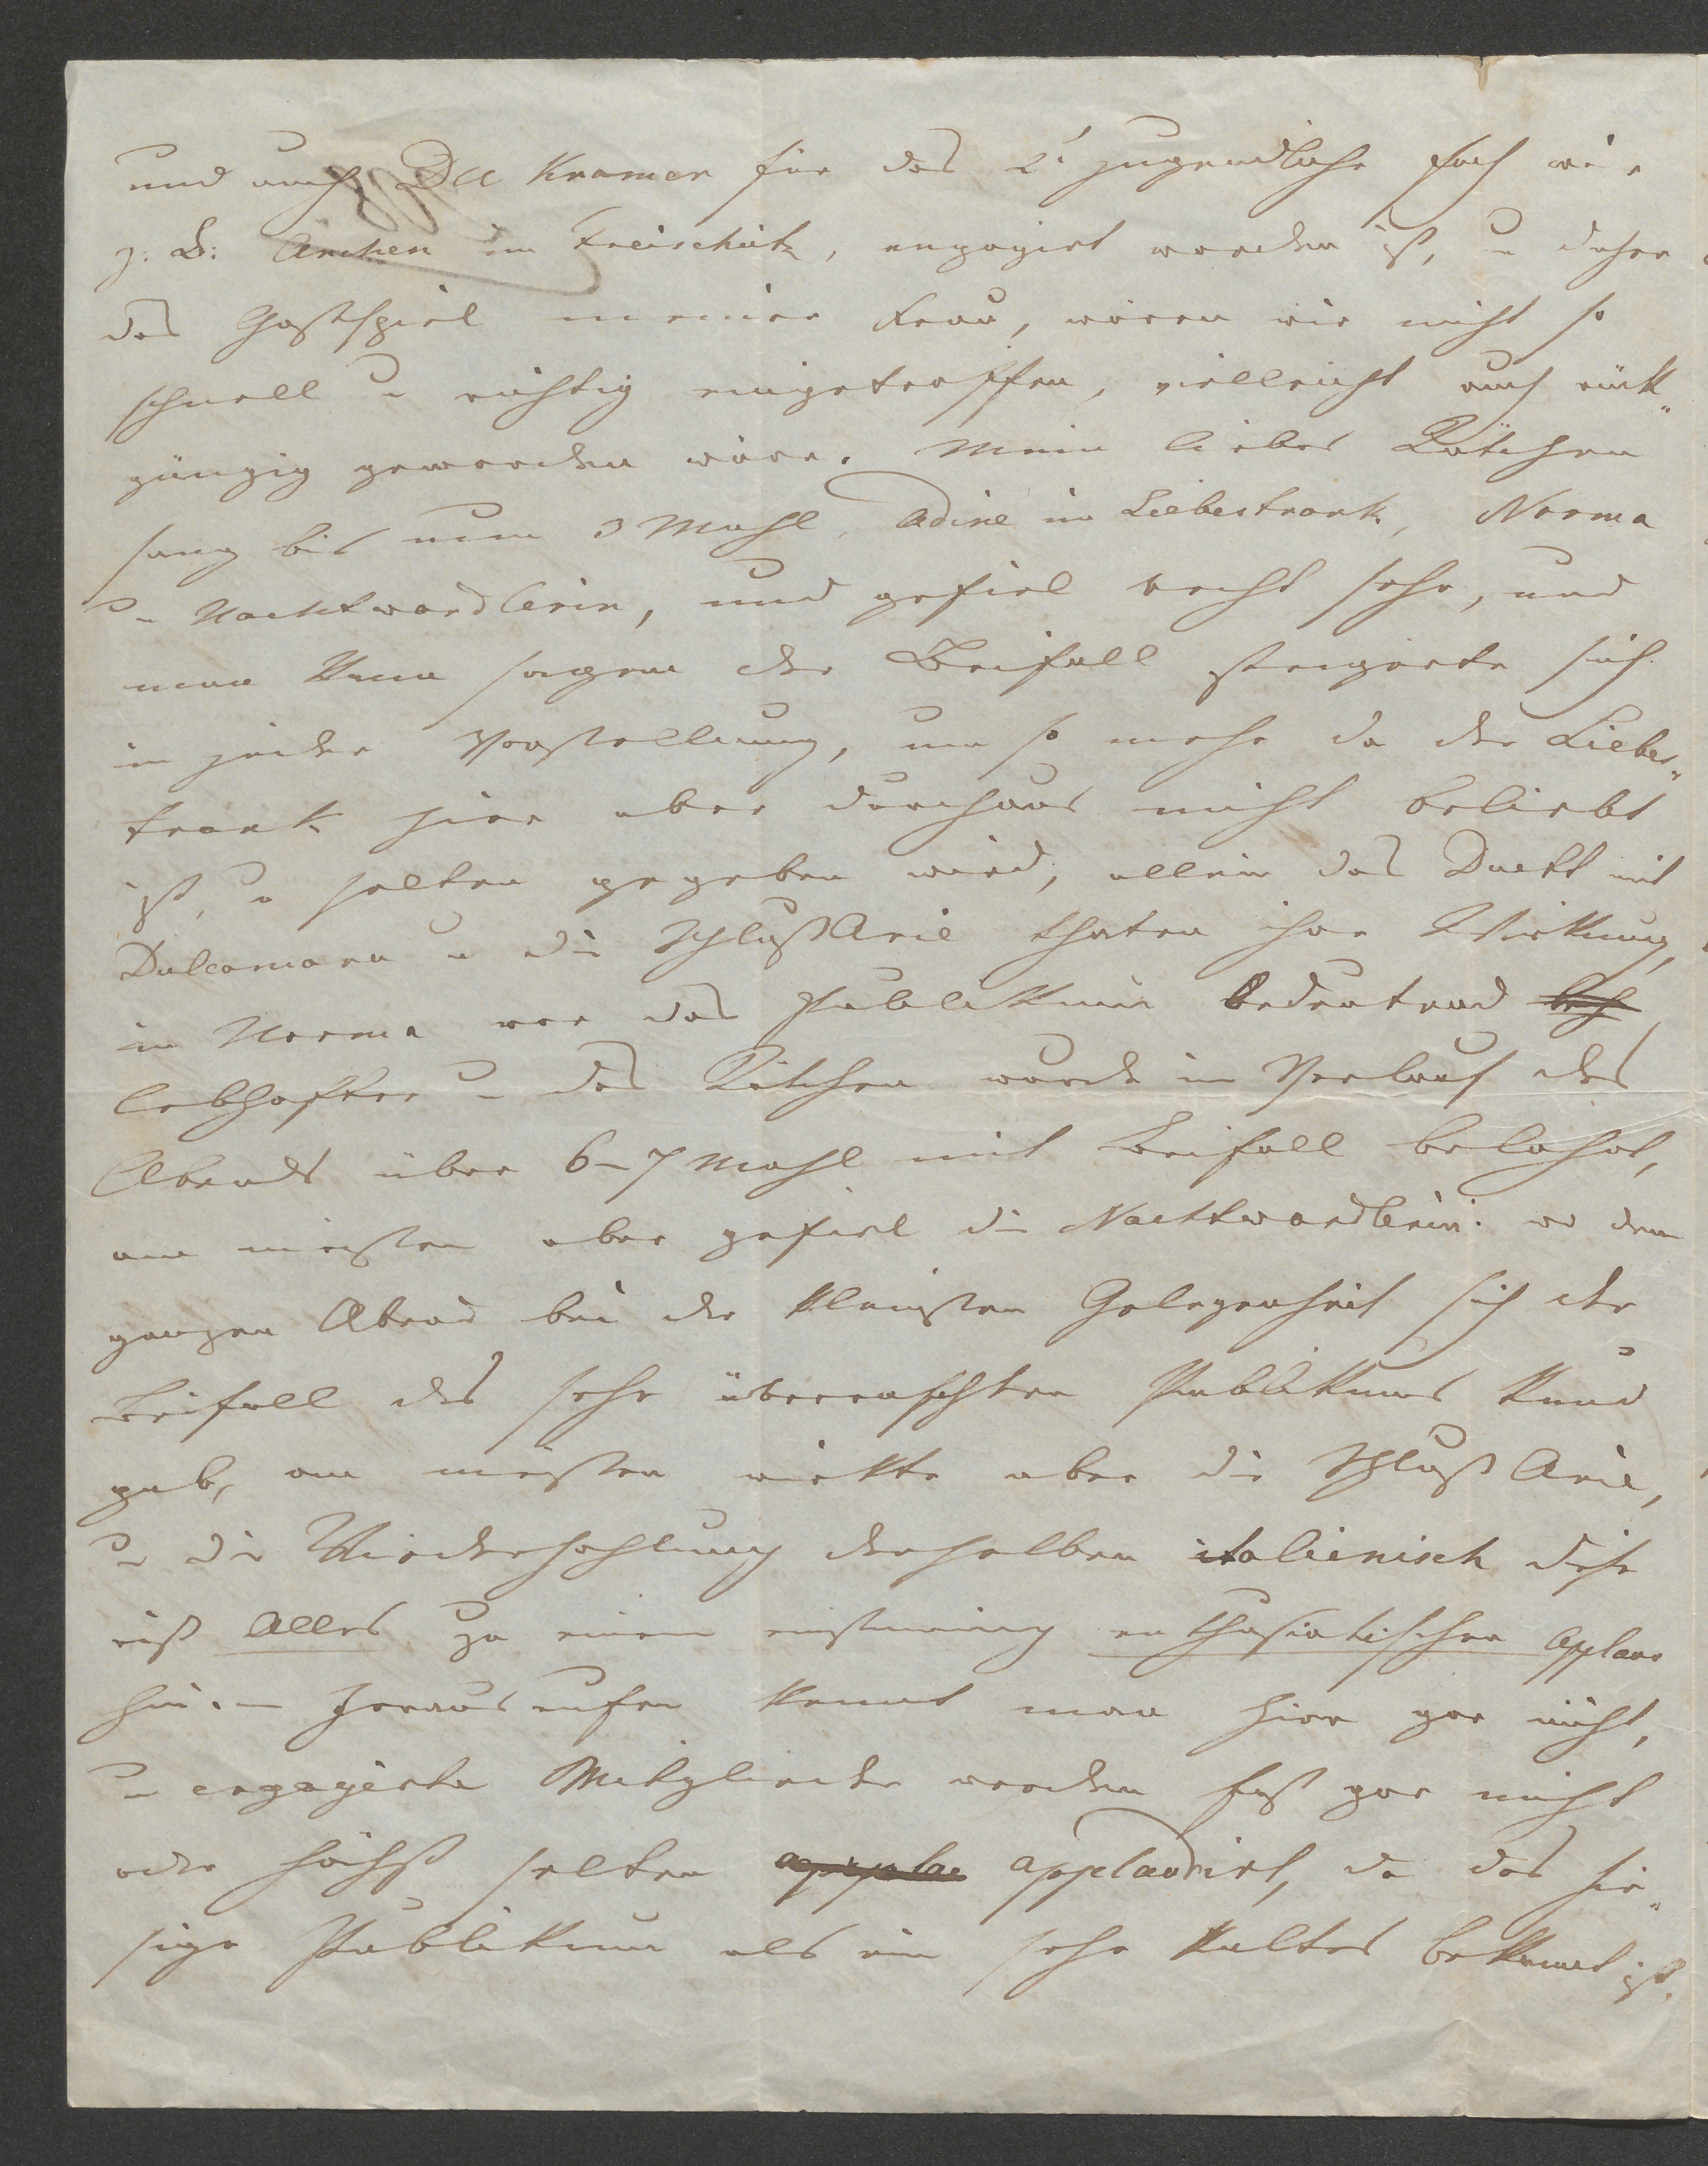 und auch Dll Kramer für das 2t jugendliche Fach wie
z: B: Anchen im Freischütz, engagirt worden ist, u daher
das Gastspiel meiner Frau, wären wir nicht so
schnell u richtig eingetroffen, vielleicht auch rück„
gängig geworden wäre. Mein liebes
sang bis nun 3 Mahl, Adine im Liebestrank, Norma
u Nachtwandlerin, und gefiel recht sehr, und
man kann sagen der Beifall steigerte sich
in jeder Vorstellung, um so mehr da der Liebes„
trank hier aber durchaus nicht beliebt
ist, u selten gegeben wird, allein das Duett mit
Dulcamara u die Schluß Arie thaten ihre Wirkung,
in Norma war das Publikum bedeutend
lebhafter u das wurde im Verlauf des
Abends über 6–7 Mahl mit Beifall belohnt,
am meisten aber gefiel die Nachtwandlerin: wo den
ganzen Abend bei der kleinsten Gelegenheit sich der
Beifall des sehr überraschten Publikums kund
gab, am meisten wirkte aber die Schluß Arie,
u die Wiederhohlung derselben italienisch diese
riß Alles zu einem einstimig enthusiatischen Applaus
hin. – Herausrufen kennt man hier gar nicht,
u engagirte Mitglieder werden fast gar nicht
oder höchst selten applau applaudirt, da das hie„
sige Publikum als ein sehr kaltes bekannt ist.